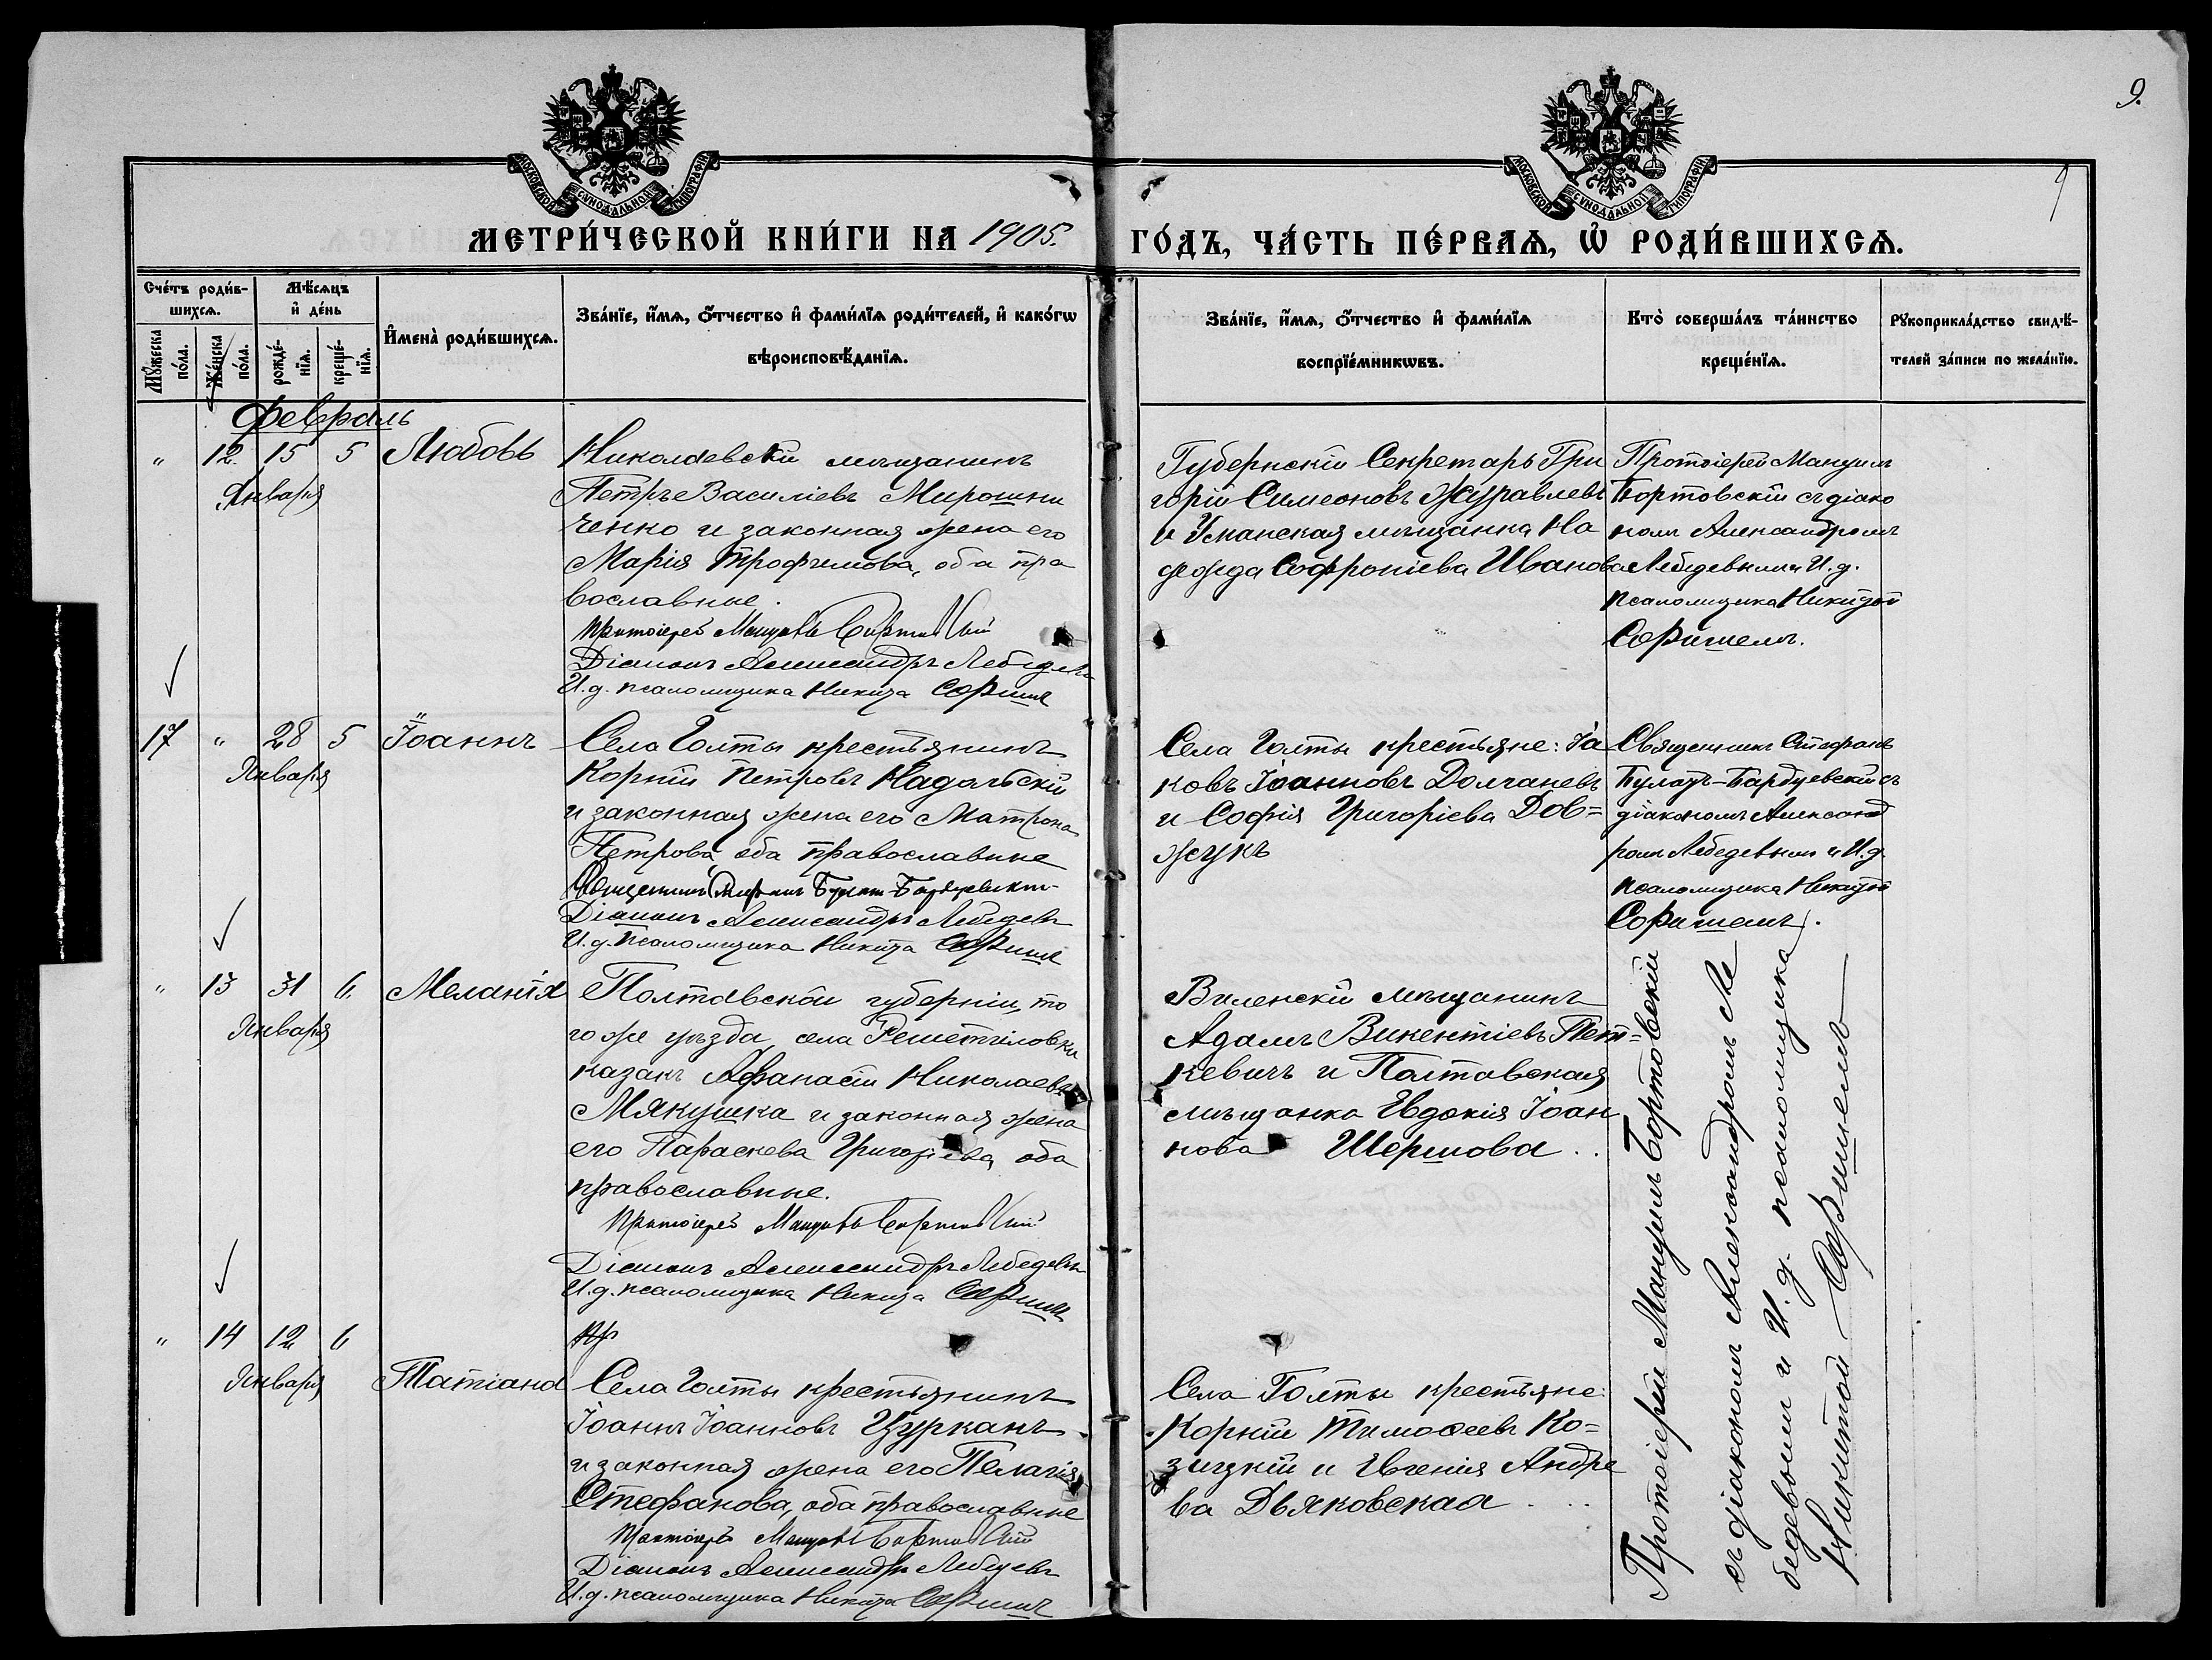 9.
9
МОСКОВСКОЙ СУНОДАЛЬНОЙ ТИПОГРАФІИ
МОСКОВСКОЙ СУНОДАЛЬНОЙ ТИПОГРАФІИ
МЕТРИ́ЧЕСКОЙ КНИ́ГИ НА 1905. ГО́ДЪ, ЧА́СТЬ ПЕ́РВАѦ, Ѡ҆ РОДИ́ВШИХСѦ.
Сче́тъ роди́в-
шихсѧ.
Мꙋ́жеска по́ла.
Же́нска по́ла.
Мѣ́сѧцъ
и҆ де́нь
рожде́-
нїѧ.
креще́-
нїѧ.
И҆мена̀ роди́вшихсѧ.
Зва́нїе, и҆́мѧ, ѻ҆́тчество и҆ фами́лїѧ роди́телей, и҆ како́гѡ
вѣроисповѣ́данїѧ.
Зва́нїе, и҆́мѧ, ѻ҆́тчество и҆ фами́лїѧ
воспрїе́мникѡвъ.
Кто̀ соверша́лъ та́инство
креще́нїѧ.
Рꙋкоприкла́дство свидѣ́-
телей за́писи по жела́нїю.
Февраль
" 12. 15 5 Любовь
Января
Николаевскій мѣщанинъ
Петръ Василіевъ Мирошни
ченко и законная жена его
Марія Трофимова, оба пра
вославные.
Протоіерей Мануилъ Бортовскій
Діаконъ Александръ Лебедевъ
И.д. псаломщика Никита
Губернскій Секретарь Гри
горій Симеоновъ Журавлевъ
и Уманская мѣщанка На
дежда Софроніева Иванова
Протоіерей Мануилъ
Бортовскій съ діако
номъ Александромъ
Лебедевымъ и И.д.
псаломщика Никитой
17 " 28 5 Іоаннъ
Января
Села Голты крестьянинъ
Корній Петровъ Надольскій
и законная жена его Матрона
Петрова, оба православные
Священникъ Стефанъ Булатъ-Бардуевскій
Діаконъ Александръ Лебедевъ
И.д. псаломщика Никита
Села Голты крестьяне: Іа
ковъ Іоанновъ Долчаневъ
и Софія Григоріева Дов=
жукъ
Священникъ Стефанъ
Булатъ-Бардуевскій съ
діакономъ Александ
ромъ Лебедевымъ и И.д.
псаломщика Никитой
" 13 31 6. Меланія
Января
Полтавской губерніи, то
го же уѣзда, села Решетиловки
казакъ Афанасій Николаевъ
Мякушка и законная жена
его Параскева Григоріева, оба
православные.
Протоіерей Мануилъ Бортовскій
Діаконъ Александръ Лебедевъ
И.д. псаломщика Никита
Виленскій мѣщанинъ
Адамъ Викентіевъ Пет=
кевичъ и Полтавская
мѣщанка Евдокія Іоан
нова Шершова..
" 14 12 6
Января
Татіана
Села Голты крестьянинъ
Іоаннъ Іоанновъ Цурканъ
и законная жена его Пелагія
Стефанова, оба православные
Протоіерей Мануилъ Бортовскій
Діаконъ Александръ Лебедевъ
И.д. псаломщика Никита
Села Голты крестьяне:
Корній Тимофеевъ Ко=
зицкій и Евгенія Андре
ва Дьяковская ...
Протоіерей Мануилъ Бортовскій
съ діакономъ Александромъ Ле
бедевымъ и И.д. псаломщика
Никитой